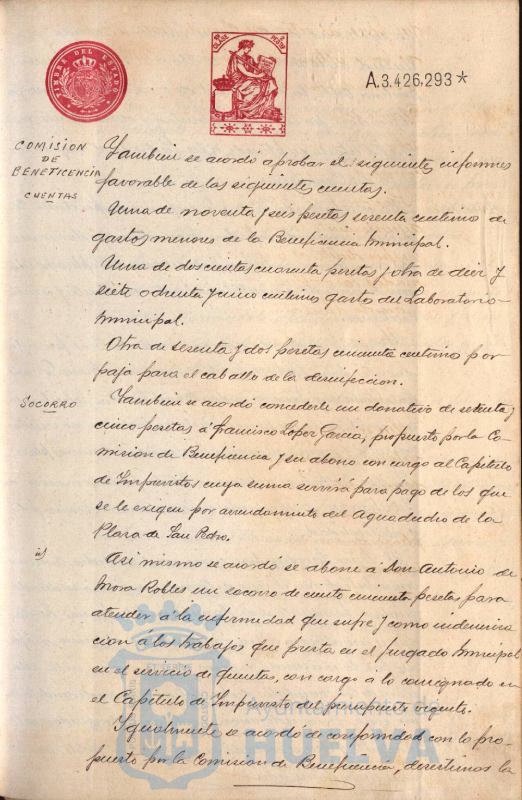 TIMBRE DEL ESTADO
A.3.426,293*
COMISION
DE
BENETICENCIA
CUENTAS
Tambien se acordó aprobar el siguiente, informes
favorable de las siguientes cuentas.
Una de noventa y seis pesetas sesenta centimos de
gastos menores de la Beneficencia Municipal.
Una de doscientas cuarenta pesetas y otra de diez y
siete ochenta y cinco centimos gastos del Laboratorio
Municipal.
Otra de sesenta y dos pesetas cincuenta centimos por
paja para el caballo de la desinfeccion.
SOCORRO
Tambien se acordó concederle un donativo de setenta y
cinco pesetas á Francisco Lopez Garcia, propuesto por la Co-
mision de Beneficencia y su abono con cargo al Capitulo
de Imprevistos cuya suma servirá para pago de los que
se le exigen por arrendamiento del Aguaducho de la
Plaza de San Pedro.
id
Asi mismo se acordó se abone á Don Antonio de
Mora Robles un socorro de ciento cincuenta pesetas para
atender á la enfermedad que sufre y como indemniza
cion á los trabajos que presta en el Juzgado Municipal
en el servicio de quintas, con cargo á lo consignado en
el Capitulo de Imprevisto del presupuesto vigente.
Igualmente se acordó de conformidad con lo pro-
puesto por la Comision de Beneficencia, desestimar la
Ayuntamiento de
HUELVA